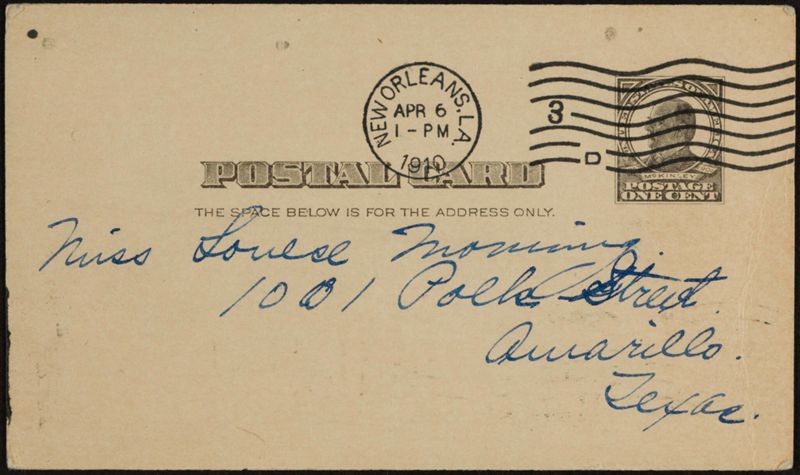 NEW ORLEANS, LA.
APR 6
1-PM
1910
3
D
McKINLEY
POSTAGE
ONE CENT
POSTAL CARD
THE SPACE BELOW IS FOR THE ADDRESS ONLY.
Miss Louese
1001 Polk Street
Amarillo.
Texas.